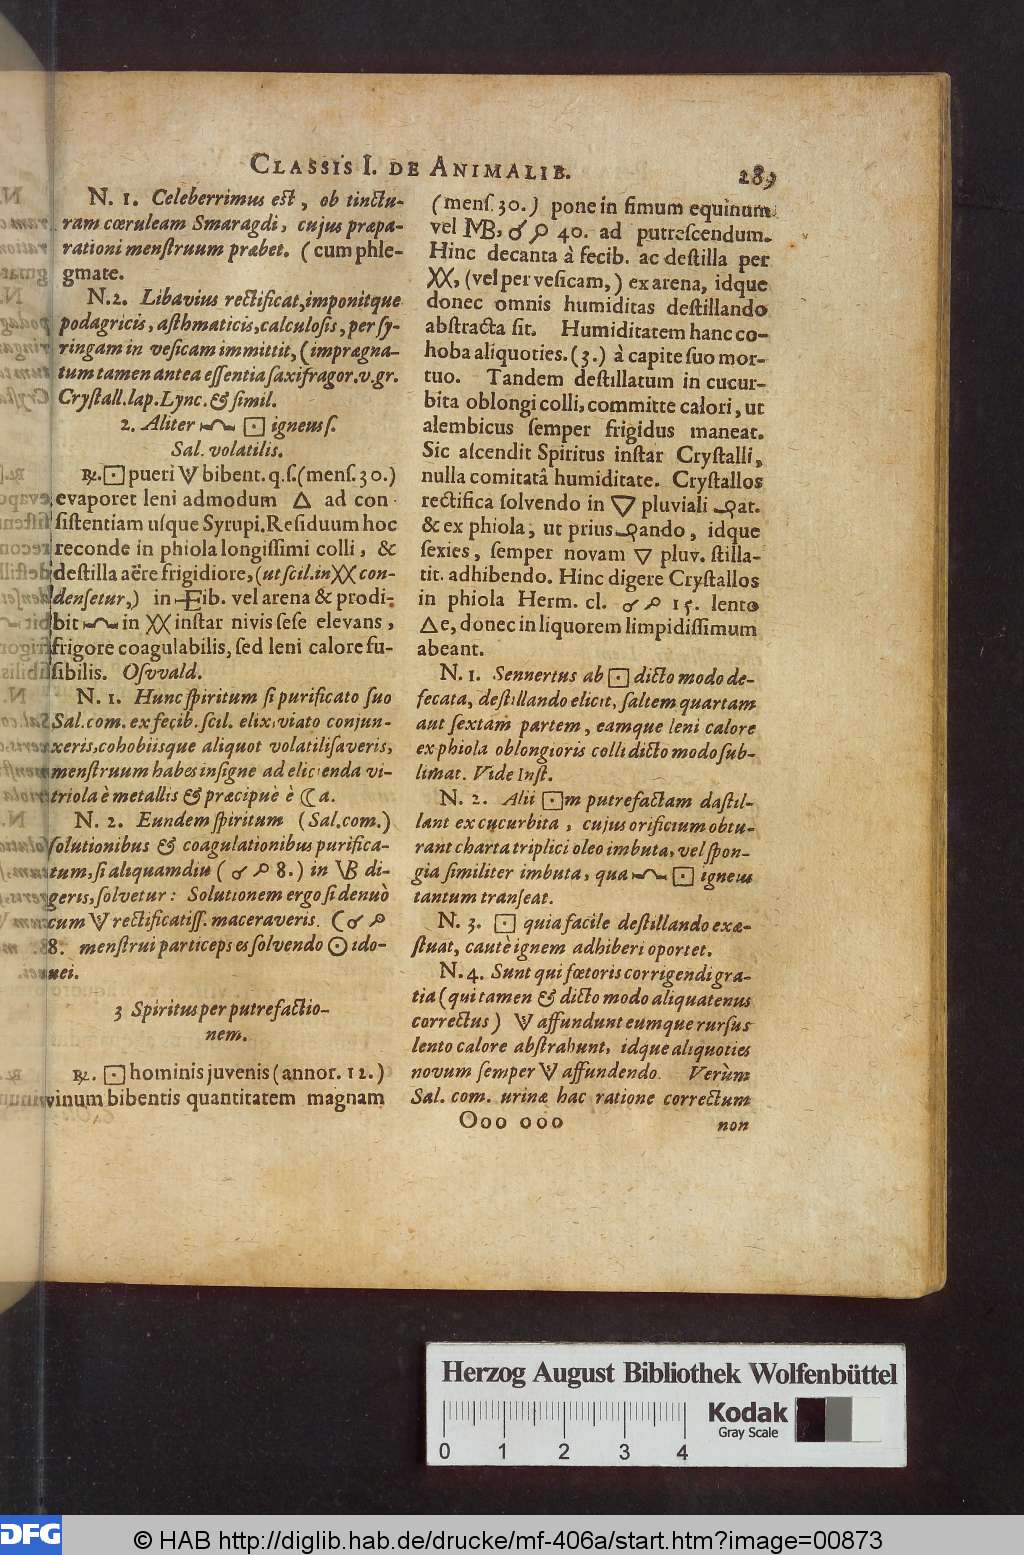 CLASSIS I. DE ANIMALIB. 289
N. 1. Celeberrimus est, ob tinctu-
ram cœruleam Smaragdi, cujus præpa-
rationi menstruum præbet. (cum phle-
gmate.
N. 2. Libavius rectificat, imponitque
podagricis, asthmaticis, calculosis, per sy-
ringam in vesicam immittit, (imprægna-
tum tamen antea essentia saxifragor. v. gr.
Crystall. lap. Lync. & simil.
2. Aliter 🝞 ⚀ igneus s.
Sal. volatilis.
℞. ⚀ pueri V bibent. q. s. (mens. 30.)
evaporet leni admodum △ ad con-
sistentiam usque Syrupi. Residuum hoc
reconde in phiola longissimi colli, &
destilla aëre frigidiore, (ut scil. in XX con-
densetur,) in Eib. vel arena & prodi-
bit 🝞 in XX instar nivis sese elevans,
frigore coagulabilis, sed leni calore fu-
sibilis. Osvvald.
N. 1. Hunc spiritum si purificato suo
Sal. com. ex fecib. scil. elixiviato conjun-
xeris, cohobiisque aliquot volatilisaveris,
menstruum habes insigne ad elicienda vi-
triola è metallis & præcipuè è ☾a.
N. 2. Eundem spiritum (Sal. com.)
solutionibus & coagulationibus purifica-
tum, si aliquamdiu (☌ ☍ 8.) in VB di-
geris, solvetur: Solutionem ergo si denuò
cum V rectificatiss. maceraveris. (☾ ☌ ☍
8. menstrui particeps es solvendo ☉ ido-
nei.
3 Spiritus per putrefactio-
nem.
℞. ⚀ hominis juvenis (annor. 12.)
vinum bibentis quantitatem magnam
(mens. 30.) pone in fimum equinum
vel MB, ☌ ☍ 40. ad putrescendum.
Hinc decanta à fecib. ac destilla per
XX, (vel per vesicam,) ex arena, idque
donec omnis humiditas destillando
abstracta sit. Humiditatem hanc co-
hoba aliquoties. (3.) à capite suo mor-
tuo. Tandem destillatum in cucur-
bita oblongi colli, committe calori, ut
alembicus semper frigidus maneat.
Sic ascendit Spiritus instar Crystalli,
nulla comitatâ humiditate. Crystallos
rectifica solvendo in ▽ pluviali at.
& ex phiola, ut prius ando, idque
sexies, semper novam ▽ pluv. stilla-
tit. adhibendo. Hinc digere Crystallos
in phiola Herm. cl. ☌ ☍ 15. lento
△e, donec in liquorem limpidissimum
abeant.
N. 1. Sennertus ab ⚀ dicto modo de-
fecata, destillando elicit, saltem quartam
aut sextam partem, eamque leni calore
ex phiola oblongioris colli dicto modo sub-
limat. Vide Inst.
N. 2. Alii ⚀m putrefactam dastil-
lant ex cucurbita, cujus orificium obtu-
rant charta triplici oleo imbuta, vel spon-
gia similiter imbuta, qua 🝞 ⚀ igneus
tantum transeat.
N. 3. ⚀ quia facile destillando exæ-
stuat, cautè ignem adhiberi oportet.
N. 4. Sunt qui fœtoris corrigendi gra-
tia (qui tamen & dicto modo aliquatenus
correctus) V affundunt eumque rursus
lento calore abstrahunt, idque aliquoties
novum semper V affundendo. Verùm
Sal. com. urinæ hac ratione correctum
Ooo ooo non
Herzog August Bibliothek Wolfenbüttel
Kodak
Gray Scale
0 1 2 3 4
DFG © HAB http://diglib.hab.de/drucke/mf-406a/start.htm?image=00873